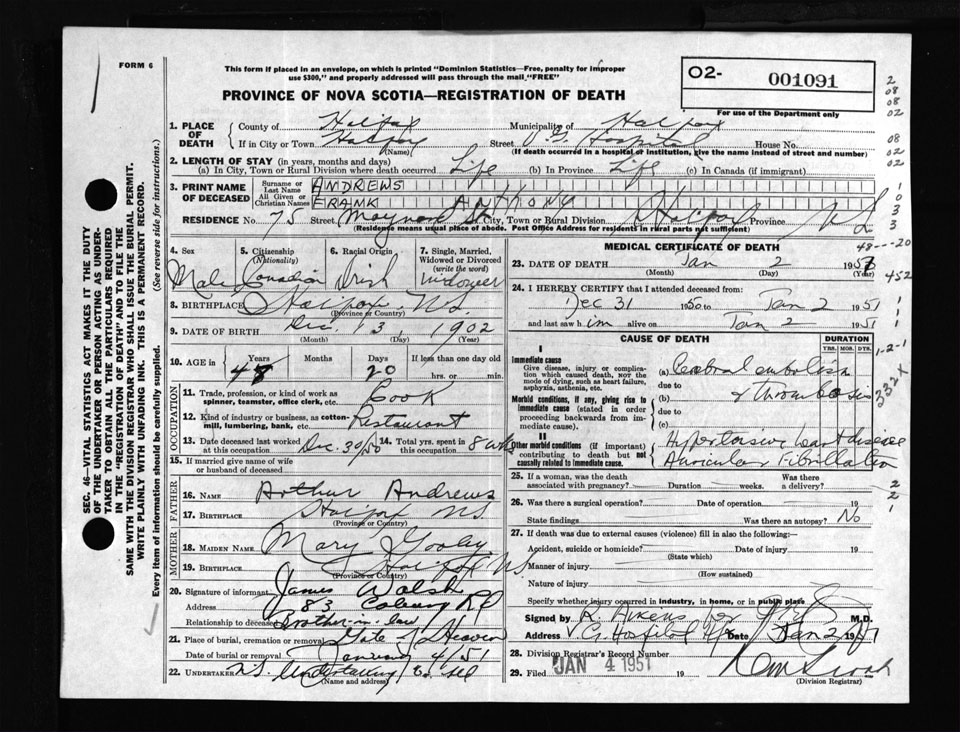 FORM 6
This form if placed in an envelope, on which is printed "Dominion Statistics—Free, penalty for improper
use $300," and properly addressed will pass through the mail "FREE"
PROVINCE OF NOVA SCOTIA—REGISTRATION OF DEATH
O2- 001091
For use of the Department only
2
08
08
02
08
02
02
SEC. 46—VITAL STATISTICS ACT MAKES IT THE DUTY
OF THE UNDERTAKER OR PERSON ACTING AS UNDER-
TAKER TO OBTAIN ALL THE PARTICULARS REQUIRED
IN THE "REGISTRATION OF DEATH" AND TO FILE THE
SAME WITH THE DIVISION REGISTRAR WHO SHALL ISSUE THE BURIAL PERMIT.
WRITE PLAINLY WITH UNFADING INK. THIS IS A PERMANENT RECORD.
Every item of information should be carefully supplied. (See reverse side for instructions.)
1. PLACE OF DEATH
County of Halifax Municipality of Halifax
If in City or Town Halifax Street V. G. Hospital House No.
(Name) (If death occurred in a hospital or institution, give the name instead of street and number)
2. LENGTH OF STAY (in years, months and days)
(a) In City, Town or Rural Division where death occurred Life (b) In Province Life (c) In Canada (if immigrant)
3. PRINT NAME OF DECEASED
Surname or Last Name ANDREWS
All Given or Christian Names FRANK ANTHONY
RESIDENCE No. 75 Street Maynard St City, Town or Rural Division Halifax Province N S
(Residence means usual place of abode. Post Office Address for residents in rural parts not sufficient)
4. Sex Male
5. Citizenship (Nationality) Canadian
6. Racial Origin Irish
7. Single, Married, Widowed or Divorced (write the word) Widower
8. BIRTHPLACE Halifax N.S.
(Province or Country)
9. DATE OF BIRTH Dec. 13, 1902
(Month) (Day) (Year)
10. AGE in Years 48 Months Days 20 If less than one day old hrs. or min.
OCCUPATION
11. Trade, profession, or kind of work as spinner, teamster, office clerk, etc. Cook
12. Kind of industry or business, as cotton-mill, lumbering, bank, etc. Restaurant
13. Date deceased last worked at this occupation Dec. 30/50 14. Total yrs. spent in this occupation 8 wks
15. If married give name of wife or husband of deceased
FATHER
16. NAME Arthur Andrews
17. BIRTHPLACE Halifax N.S.
(Province or Country)
MOTHER
18. MAIDEN NAME Mary
19. BIRTHPLACE Halifax NS
(Province or Country)
20. Signature of informant James Walsh
Address 83 Coburg Rd
Relationship to deceased Brother-in-law
21. Place of burial, cremation or removal Gate of Heaven
Date of burial or removal January 4/51
22. UNDERTAKER N.S. Undertaking Co. Ltd
(Name and address)
MEDICAL CERTIFICATE OF DEATH
48---20
23. DATE OF DEATH Jan 2 1951
(Month) (Day) (Year)
452
24. I HEREBY CERTIFY that I attended deceased from:
Dec 31 1950 to Jan 2 1951
and last saw him alive on Jan 2 1951
CAUSE OF DEATH DURATION
YRS. MOS. DYS.
1-2-1
I
Immediate cause
Give disease, injury or complication which caused death, not the mode of dying, such as heart failure, asphyxia, asthenia, etc.
(a) Cerebral embolism
due to
Morbid conditions, if any, giving rise to immediate cause (stated in order proceeding backwards from immediate cause).
(b) & thrombosis
due to
(c)
332X
II
Other morbid conditions (if important) contributing to death but not causally related to immediate cause.
Hypertensive heart disease
Auricular Fibrillation
25. If a woman, was the death associated with pregnancy? Duration weeks. Was there a delivery?
26. Was there a surgical operation? Date of operation 19
State findings Was there an autopsy? No
27. If death was due to external causes (violence) fill in also the following:
Accident, suicide or homicide? Date of injury 19
(State which)
Manner of injury
(How sustained)
Nature of injury
Specify whether injury occurred in industry, in home, or in public place
Signed by R Aikens for M.D.
Address V G Hospital Hfx Date Jan 2 1951
28. Division Registrar's Record Number 4
29. Filed JAN 4 1951 19
(Division Registrar)